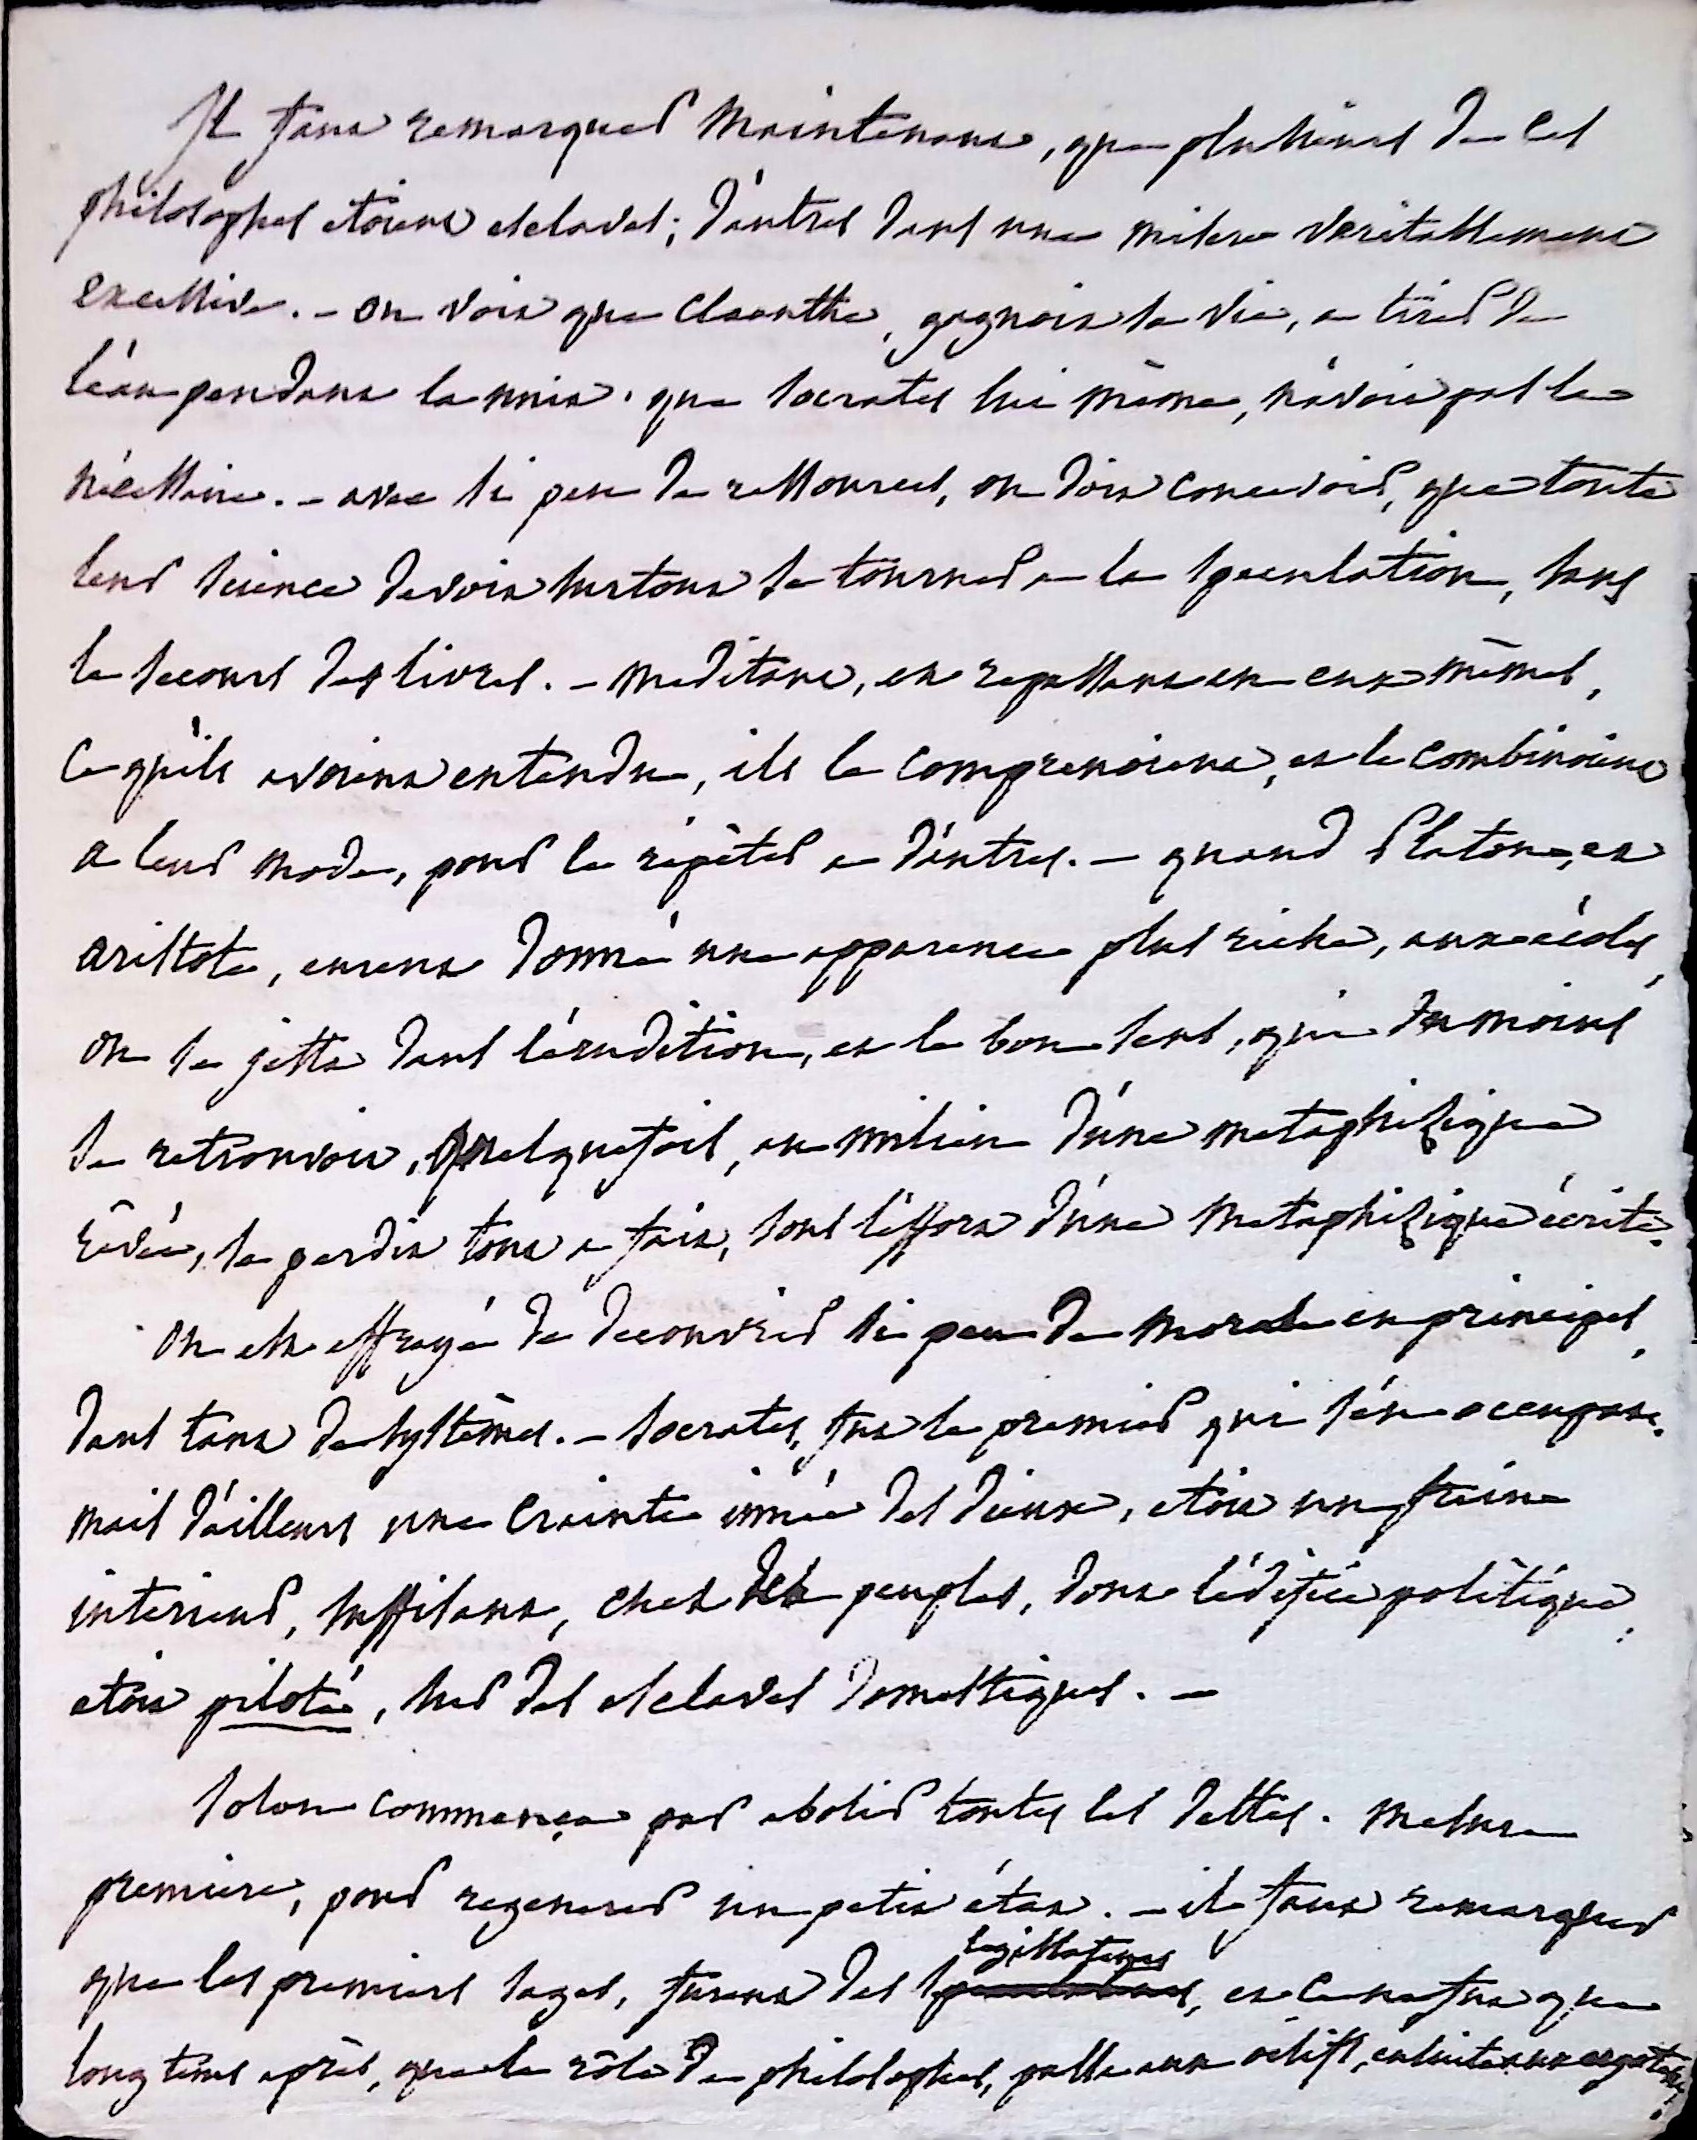 Il faut remarquer maintenant, que plusieurs de ces
philosophes étoient esclaves; d'autres dans une misere veritablement
excessive. - on voit que Cleanthe, gagnoit sa vie, a tirer de
l'eau pendant la nuit. que Socrates lui même, n'avoit pas le
nécessaire. - avec si peu de ressources, on doit concevoir, que toute
leur science devoit surtout se tourner a la speculation, sans
le secours des livres. - meditant, et repassant en eux mêmes,
ce qu'ils avoient entendu, ils le comprenoient, et le combinoient
a leur mode, pour le répéter a d'autres. - quand Platon, et
aristote, eurent donné une apparence plus riche, aux écoles,
on se jetta dans l'érudition, et le bon sens, qui du moins
se retrouvoit, quelquefois, au milieu d'une metaphisique
rêvée, se perdit tout a fait, sous l'effort d'une metaphisique écrite.
on est effrayé de decouvrir si peu de morale en principes,
dans tant de systêmes. - Socrates, fut le premier qui s'en occupat.
mais d'ailleurs une crainte innée des dieux, etoit un frein
interieur, suffisant, chez des peuples, dont l'édifice politique,
etoit piloté, sur des esclaves domestiques. -
Solon commença par abolir toutes les dettes. mesure
premiere, pour regenerer un petit état. - il faut remarquer
que les premiers sages, furent des legislateurs, et ce ne fut que
long tems après, que le rôle de philosophes, passa aux oisifs, ensuite aux